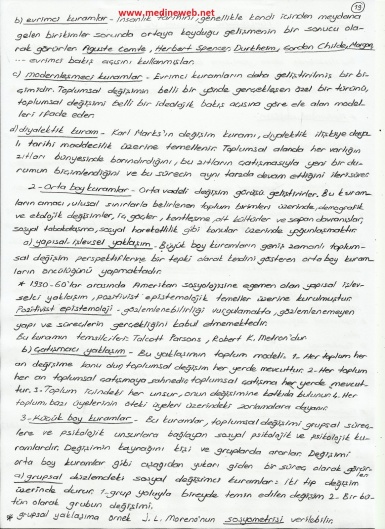 www.medineweb.net
19
b) evrimci kuramlar - İnsanlık tarihini, genellikle kendi içinden meydana
gelen birikimler sonunda ortaya koyduğu gelişmenin bir sonucu ola-
rak görürler. Aguste Comte, Herbert Spencer, Durkheim, Gordon Childe, Morgan
--- evrimci bakış açısını kullanmışlar.
c) modernleşmeci kuramlar - Evrimci kuramların daha geliştirilmiş bir bi-
çimidir. Toplumsal değişimin belli bir yönde gerçekleşen özel bir türünü,
toplumsal değişimi belli bir ideolojik bakış açısına göre ele alan model-
leri ifade eder.
d) diyalektik kuram - Karl Marks'ın değişim kuramı, diyalektik ilişkiye daya-
lı tarihi maddecilik üzerine temellenir. Toplumsal alanda her varlığın
zıtları bünyesinde barındırdığını, bu zıtların çatışmasıyla yeni bir du-
rumun biçimlendiğini ve bu sürecin aynı tarzda devam ettiğini ileri sürer.
2 - Orta boy kuramlar - Orta vadeli değişim görüşü geliştirirler. Bu kuram-
ların amacı, ulusal sınırlarla belirlenen toplum birimleri üzerinde, demografik
ve ekolojik değişimler, iç göçler, kentleşme, alt kültürler ve sapan davranışlar,
sosyal tabakalaşma, sosyal hareketlilik gibi konular üzerinde yoğunlaşmaktır.
a) yapısal-işlevsel yaklaşım - Büyük boy kuramların geniş zamanlı toplum-
sal değişim perspektiflerine bir tepki olarak kendini gösteren orta boy kuram-
ların öncülüğünü yapmaktadır.
* 1930-60'lar arasında Amerikan sosyolojisine egemen olan yapısal işlev-
selci yaklaşım, pozitivist epistemolojik temeller üzerine kurulmuştur.
Pozitivist epistemoloji - gözlemlenebilirliği vurgulamakta, gözlemlenemeyen
yapı ve süreçlerin gerçekliğini kabul etmemektedir.
Bu kuramın temsilcileri: Talcott Parsons, Robert K. Merton'dur.
b) Çatışmacı yaklaşım - Bu yaklaşımın toplum modeli. 1. Her toplum her
an değişime konu olur, toplumsal değişim her yerde mevcuttur. 2. Her toplum
her an toplumsal çatışmaya sahnedir, toplumsal çatışma her yerde mevcut-
tur. 3. Toplum içindeki her unsur, onun değişimine katkıda bulunur. 4. Her
toplum bazı üyelerinin öteki üyeleri üzerindeki zorlamalara dayanır.
3 - Küçük boy kuramlar - Bu kuramlar, toplumsal değişimi grupsal süreç-
lere ve psikolojik unsurlara bağlayan sosyal psikolojik ve psikolojik ku-
ramlardır. Değişimin kaynağını kişi ve gruplarda ararlar. Değişimi
orta boy kuramlar gibi aşağıdan yukarı giden bir süreç olarak görürler.
a) grupsal düzlemdeki sosyal değişimci kuramlar: iki tip değişim
üzerinde durur. 1- grup yoluyla bireyde temin edilen değişim 2. Bir bü-
tün olarak grubun değişimi.
* grupsal yaklaşıma örnek J. L. Moreno'nun sosyometrisi verilebilir.